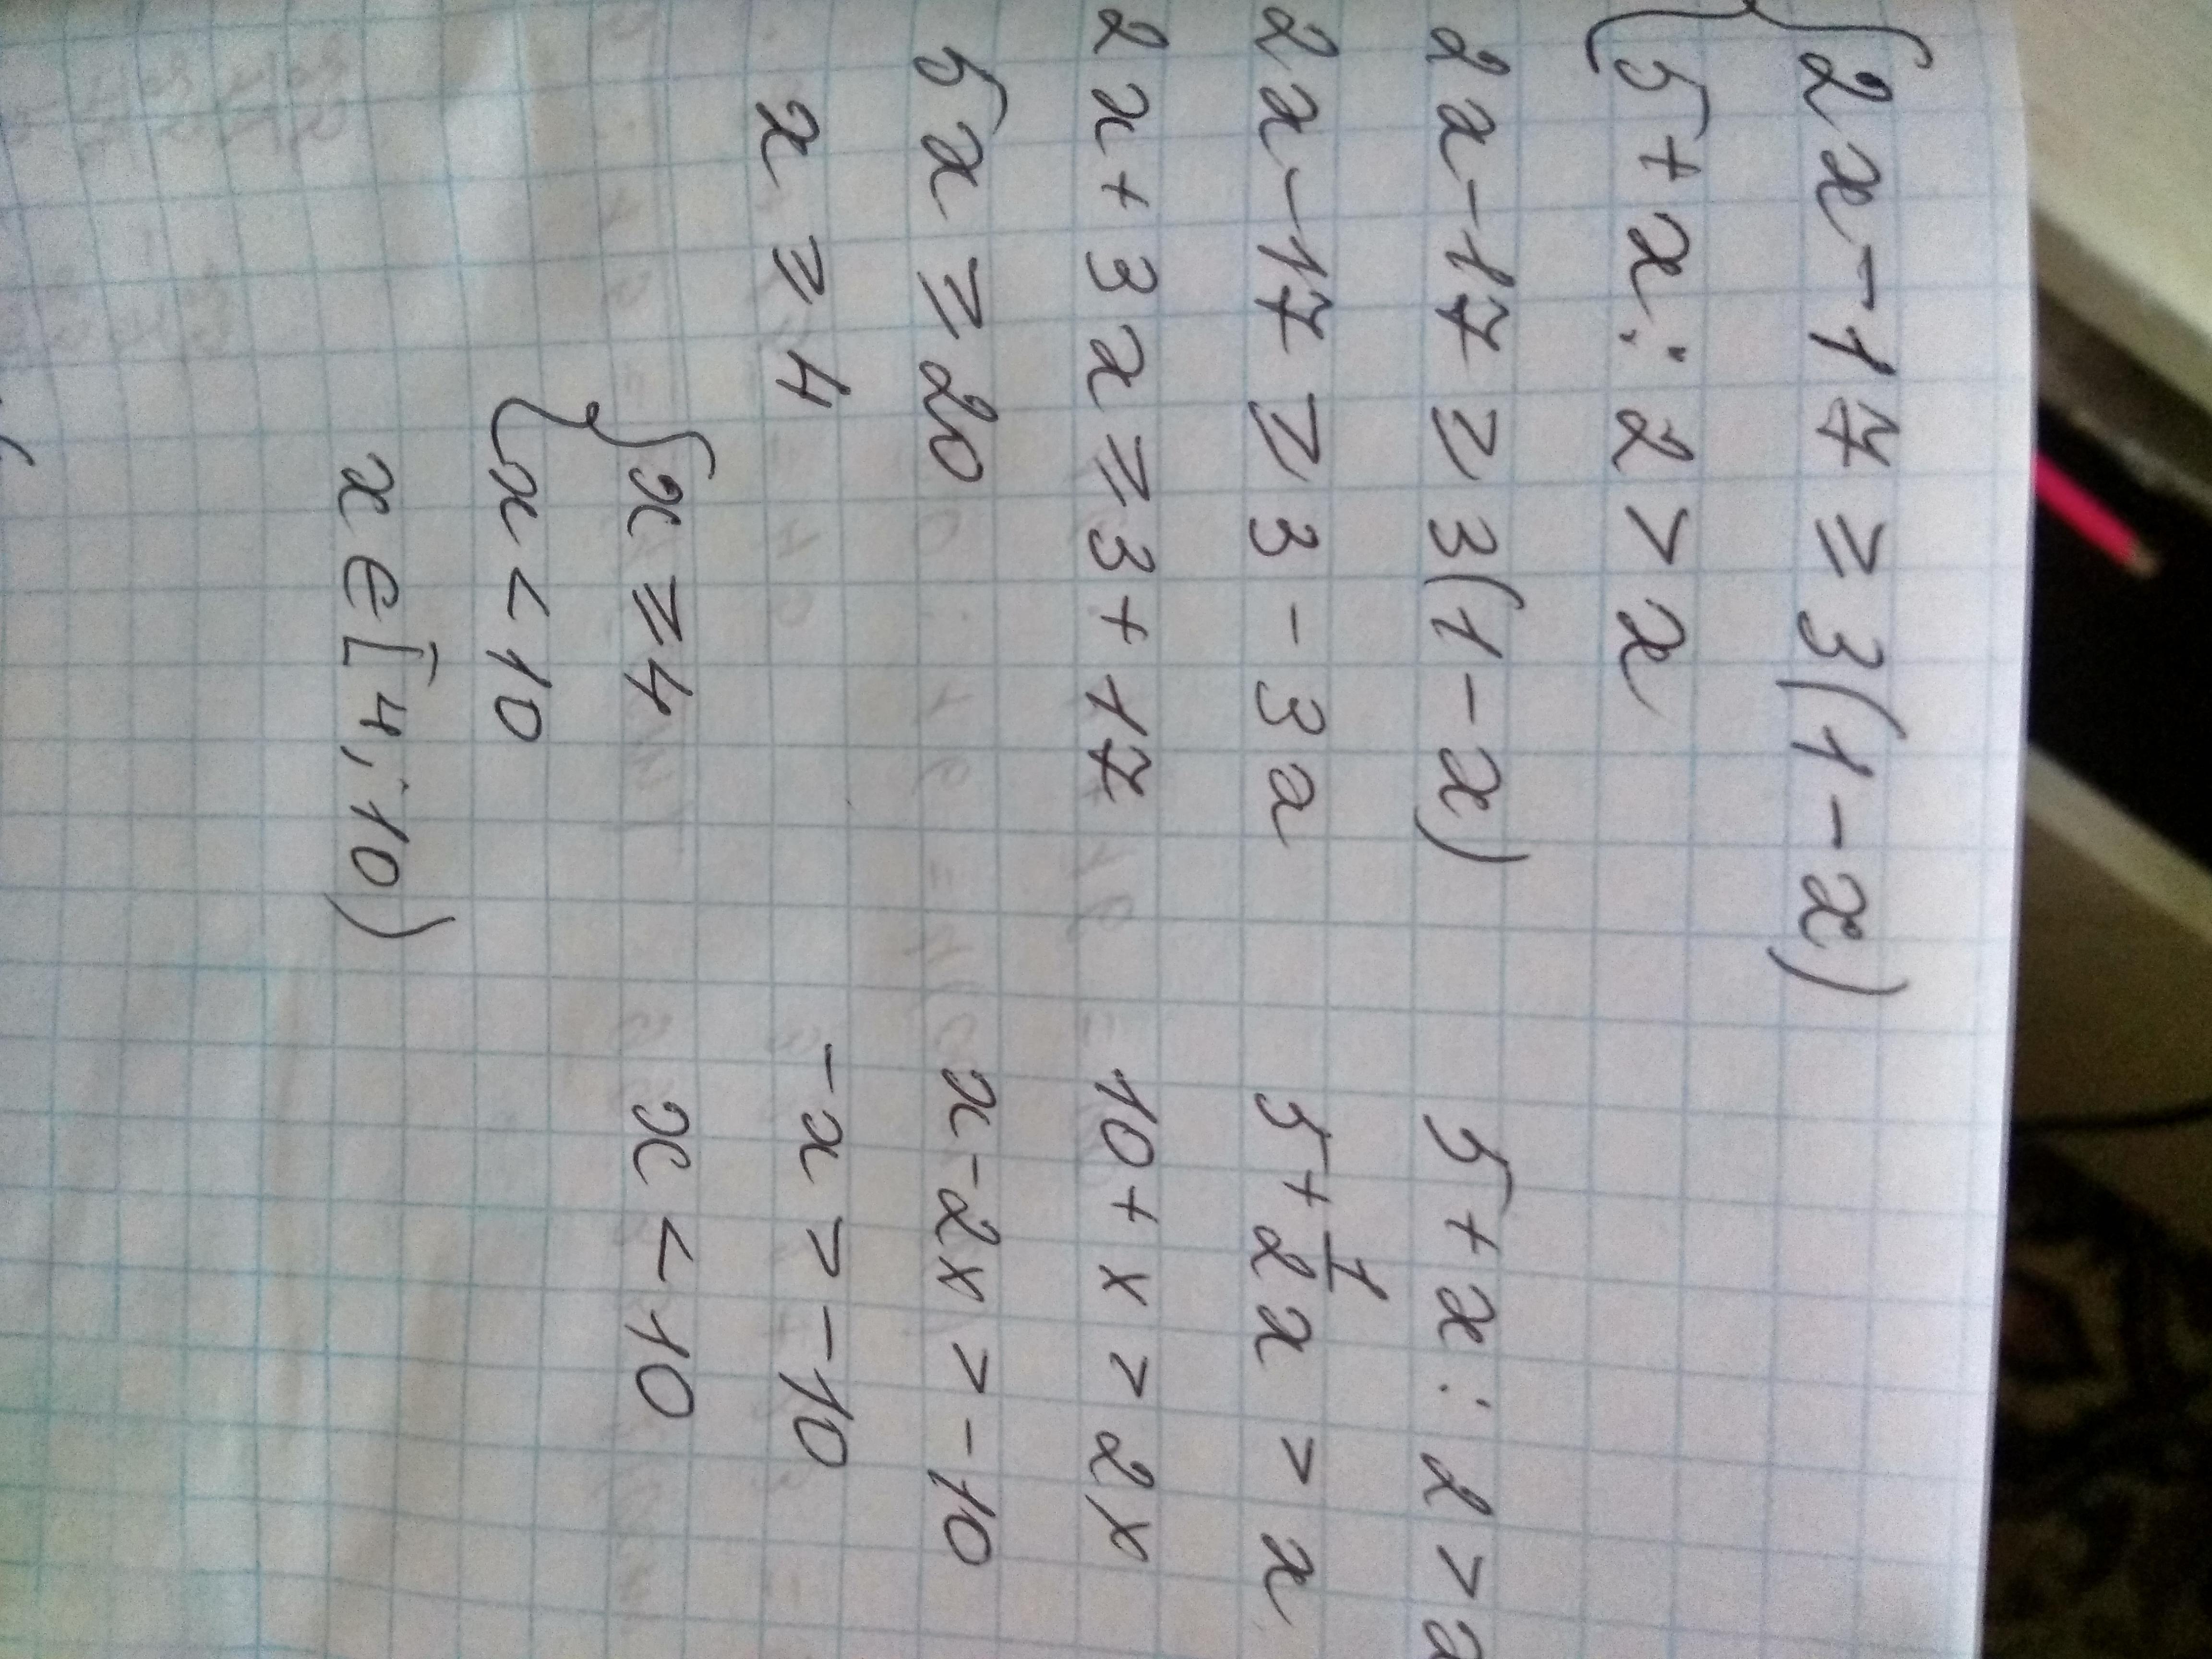 {2x-17≥3(1-x)
{5+x:2>x
2x-17≥3(1-x)
2x-17≥3-3x
2x+3x≥3+17
5x≥20
x≥4
5+x:2>x
5+1/2x>x
10+x>2x
x-2x>-10
-x>-10
x<10
{x≥4
{x<10
x∈[4;10)